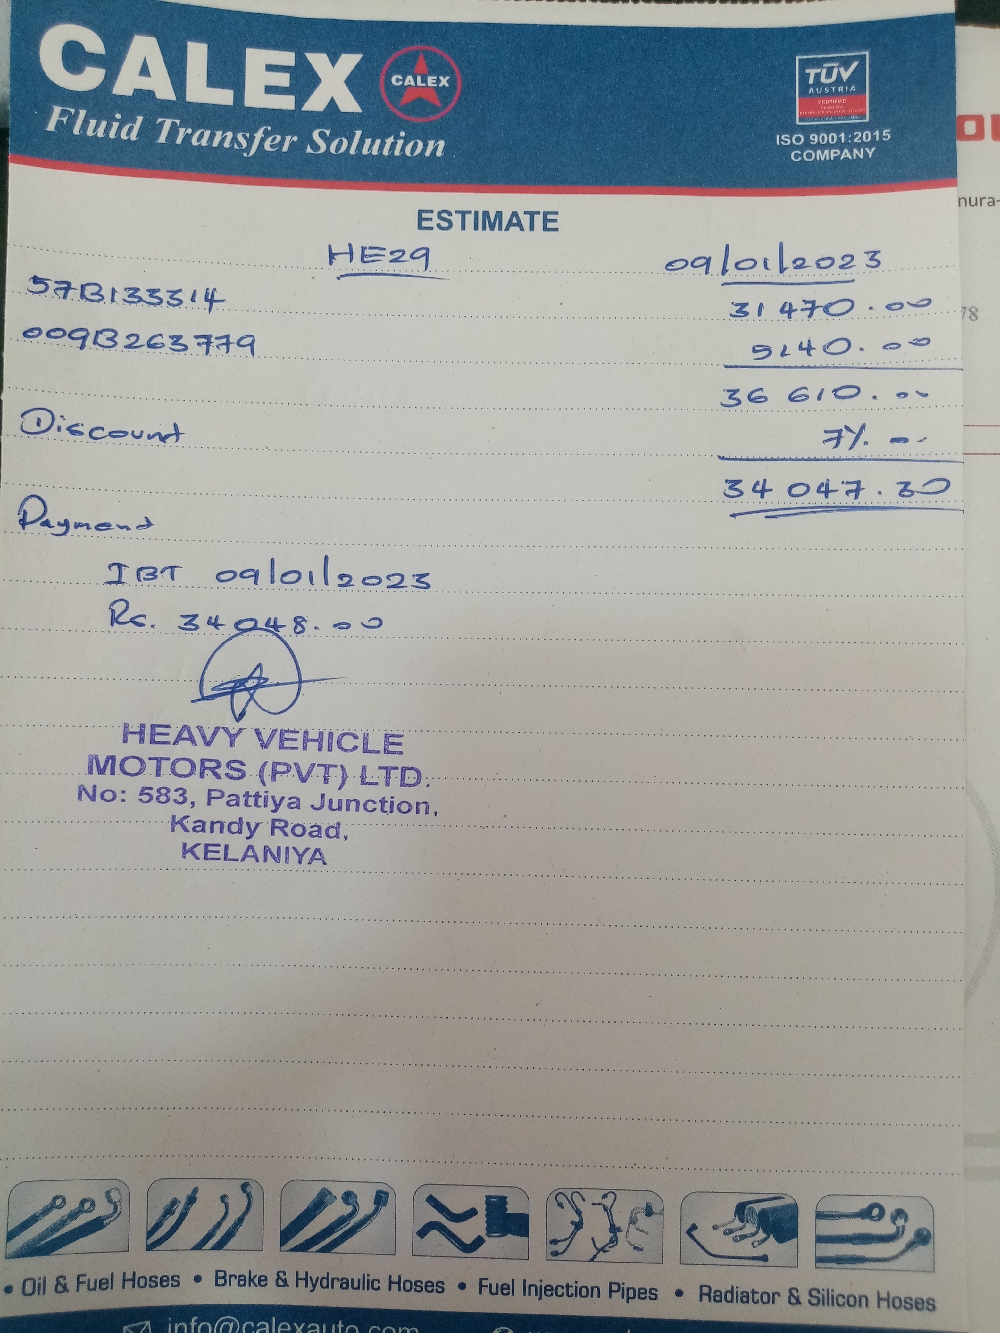 CALEX
CALEX
Fluid Transfer Solution
TÜV
AUSTRIA
ISO 9001:2015
COMPANY
ESTIMATE
HE29 09/01/2023
57B133314 31 470.00
009B263779 5140.00
36 610.00
Discount 7%
34 047.30
Payment
IBT 09/01/2023
Rs. 34048.00
HEAVY VEHICLE
MOTORS (PVT) LTD.
No: 583, Pattiya Junction,
Kandy Road,
KELANIYA
• Oil & Fuel Hoses • Brake & Hydraulic Hoses • Fuel Injection Pipes • Radiator & Silicon Hoses
info@calexauto.com
nura-
78